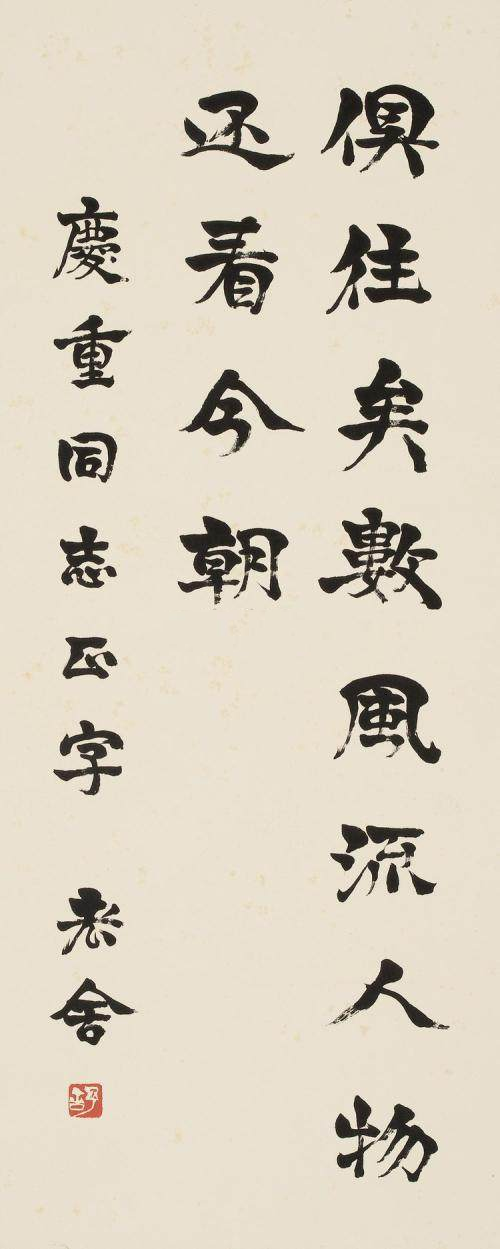 俱往矣數風流人物
还看今朝
慶重同志正字
老舍
舒